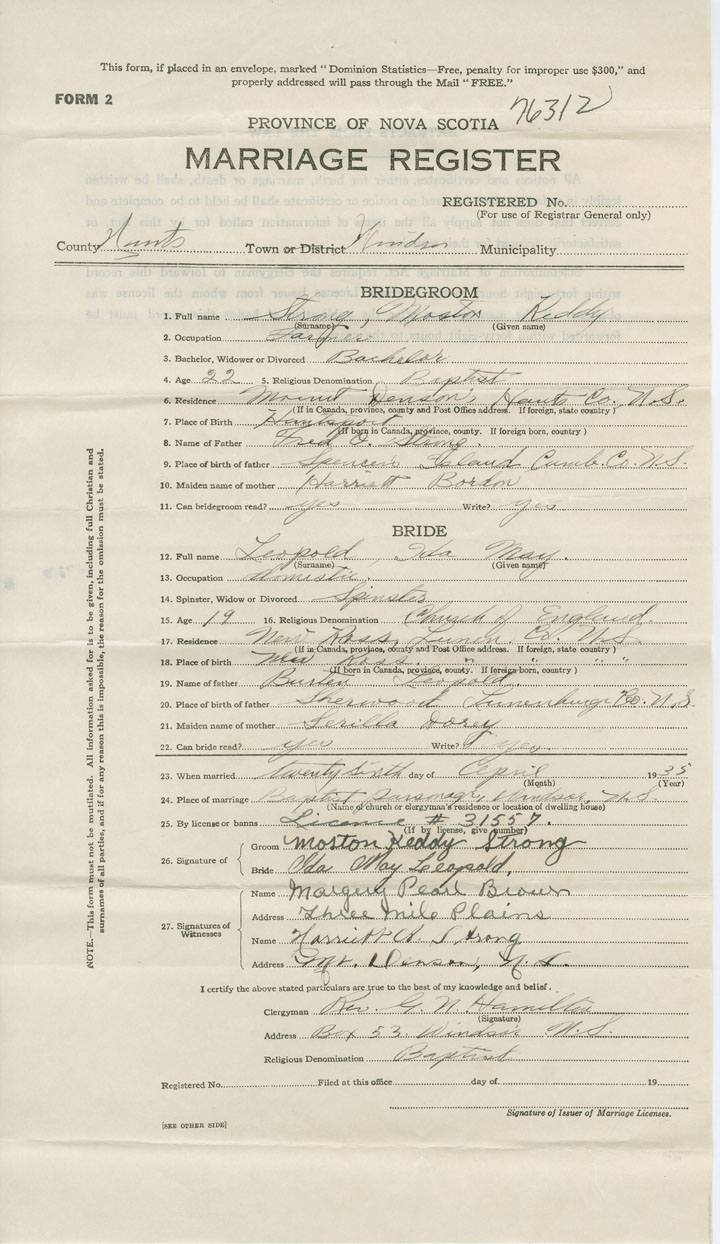 This form, if placed in an envelope, marked "Dominion Statistics—Free, penalty for improper use $300," and
properly addressed will pass through the Mail "FREE."
FORM 2
76312
PROVINCE OF NOVA SCOTIA
MARRIAGE REGISTER
REGISTERED No.
(For use of Registrar General only)
County Hants Town or District Windsor Municipality
BRIDEGROOM
1. Full name Strong, Moston Keddy
(Surname) (Given name)
2. Occupation
3. Bachelor, Widower or Divorced Bachelor
4. Age 22 5. Religious Denomination Baptist
6. Residence Mount Denson, Hants Co. N.S.
(If in Canada, province, county and Post Office address. If foreign, state country)
7. Place of Birth Hantsport
(If born in Canada, province, county. If foreign born, country)
8. Name of Father Fred O. Strong.
9. Place of birth of father Spencer's Island Cumb. Co. N.S.
10. Maiden name of mother Harriett Bordon
11. Can bridegroom read? yes Write? yes
BRIDE
12. Full name Leopold, Ida May.
(Surname) (Given name)
13. Occupation Domestic.
14. Spinster, Widow or Divorced Spinster
15. Age 19 16. Religious Denomination Church of England.
17. Residence New Ross, Lunen. Co. N.S.
(If in Canada, province, county and Post Office address. If foreign, state country)
18. Place of birth New Ross. " " " "
(If born in Canada, province, county. If foreign born, country)
19. Name of father Leopold.
20. Place of birth of father Sherwood Lunenburg Co. N.S.
21. Maiden name of mother Dorey
22. Can bride read? yes Write? yes.
23. When married twenty sixth day of April 1935
(Month) (Year)
24. Place of marriage Baptist Parsonage, Windsor, N.S.
(Name of church or clergyman's residence or location of dwelling house)
25. By license or banns License # 31557.
(If by license, give number)
26. Signature of Groom Moston Keddy Strong
Bride Ida May Leopold,
27. Signatures of Witnesses
Name Margery Pearl Brown
Address Three Mile Plains
Name Harriett A Strong
Address Mt. Denson, N.S.
I certify the above stated particulars are true to the best of my knowledge and belief.
Clergyman Rev. G. N. Hamilton
(Signature)
Address Box 53 Windsor N.S.
Religious Denomination Baptist
Registered No. Filed at this office day of 19
Signature of Issuer of Marriage Licenses.
[SEE OTHER SIDE]
NOTE.—This form must not be mutilated. All information asked for is to be given, including full Christian and
surnames of all parties, and if for any reason this is impossible, the reason for the omission must be stated.